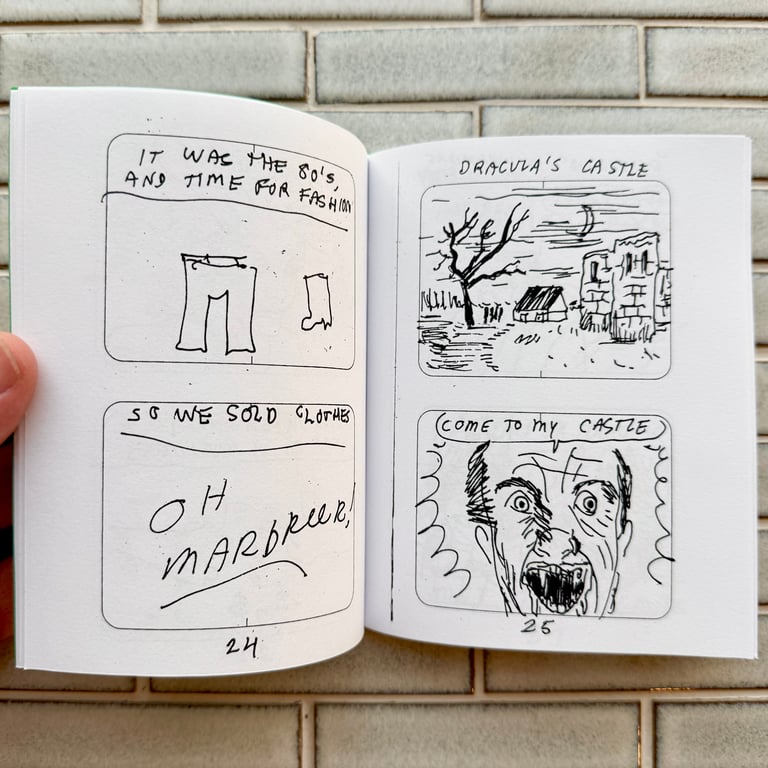 IT WAS THE 80'S,
AND TIME FOR FASHION
SO WE SOLD CLOTHES
OH
24
DRACULA'S CASTLE
COME TO MY CASTLE
25